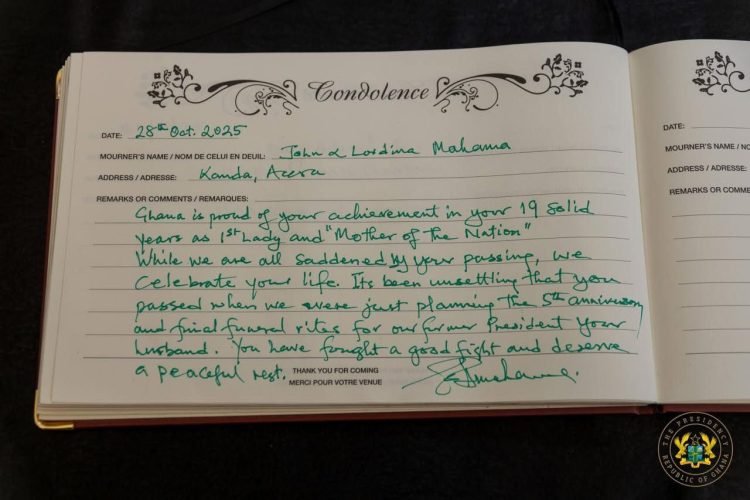 Condolence
DATE: 28th Oct. 2025
MOURNER'S NAME / NOM DE CELUI EN DEUIL: John & Lordina Mahama
ADDRESS / ADRESSE: Kanda, Accra
REMARKS OR COMMENTS / REMARQUES:
Ghana is proud of your achievement in your 19 solid
years as 1st Lady and "Mother of the Nation"
While we are all saddened by your passing, we
celebrate your life. Its been unsettling that you
passed when we were just planning the 5th anniversary
and final funeral rites for our former President your
husband. You have fought a good fight and deserve
a peaceful rest.
THANK YOU FOR COMING
MERCI POUR VOTRE VENUE
DATE:
MOURNER'S NAME / NO
ADDRESS / ADRESSE:
REMARKS OR COMME
THE PRESIDENCY
REPUBLIC OF GHANA